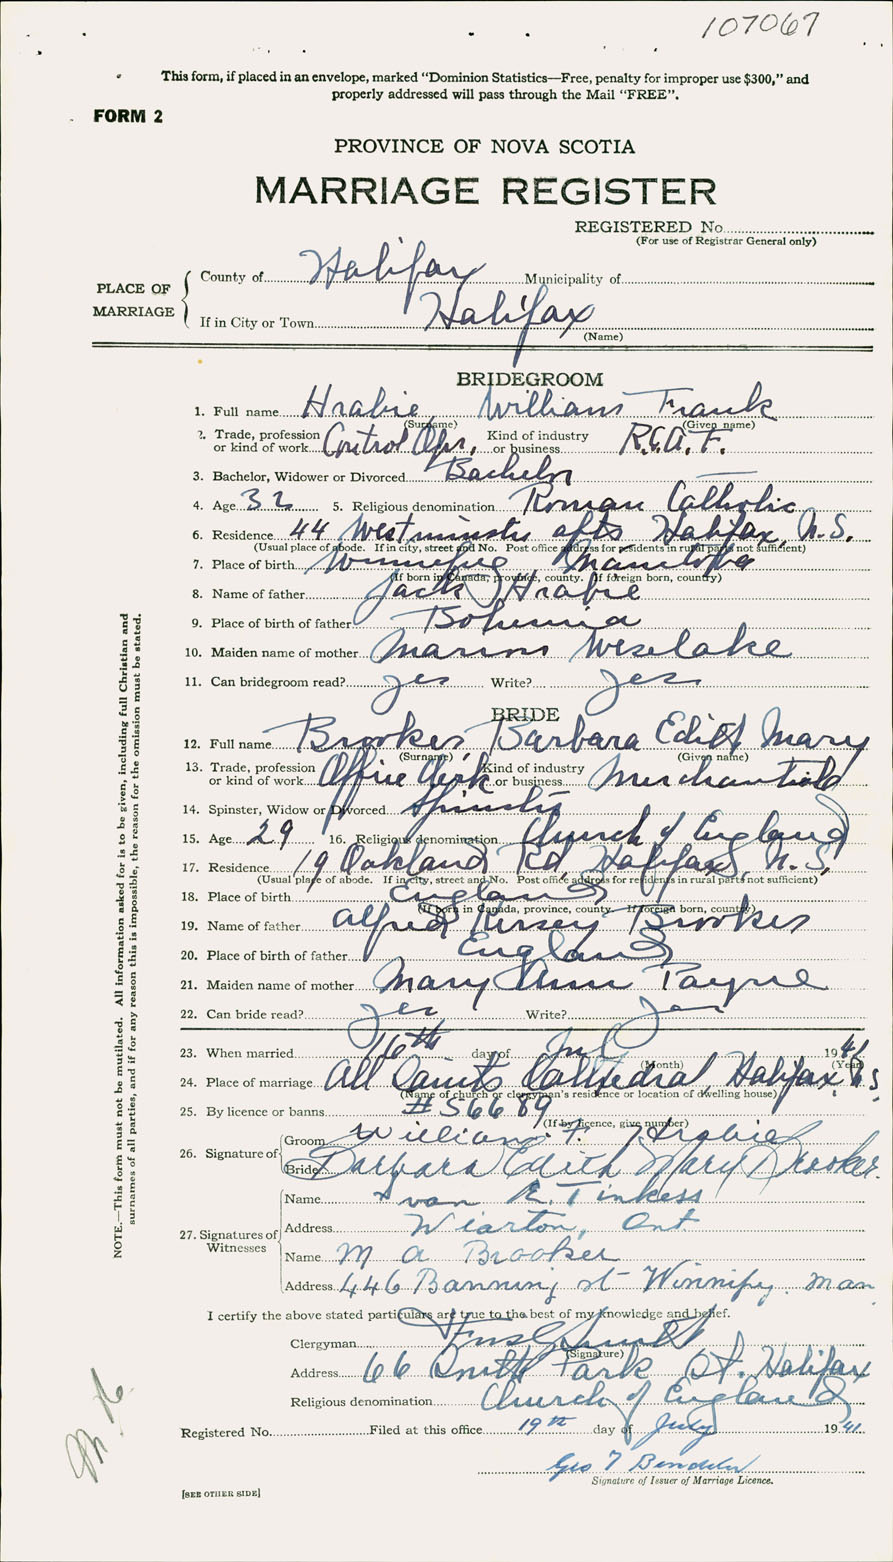 107067
This form, if placed in an envelope, marked "Dominion Statistics—Free, penalty for improper use $300," and
properly addressed will pass through the Mail "FREE".
FORM 2
PROVINCE OF NOVA SCOTIA
MARRIAGE REGISTER
REGISTERED No.
(For use of Registrar General only)
PLACE OF MARRIAGE
County of Halifax Municipality of
If in City or Town Halifax
(Name)
BRIDEGROOM
1. Full name Hrabie, William Frank
(Surname) (Given name)
2. Trade, profession or kind of work Control Opr. Kind of industry or business R.C.A.F.
3. Bachelor, Widower or Divorced Bachelor
4. Age 32 5. Religious denomination Roman Catholic
6. Residence 44 Westminster apts Halifax, N.S.
(Usual place of abode. If in city, street and No. Post office address for residents in rural parts not sufficient)
7. Place of birth Winnipeg Manitoba
(If born in Canada, province, county. If foreign born, country)
8. Name of father Jack Hrabie
9. Place of birth of father Bohemia
10. Maiden name of mother Marion Weselake
11. Can bridegroom read? yes Write? yes
BRIDE
12. Full name Brookes, Barbara Edith Mary
(Surname) (Given name)
13. Trade, profession or kind of work Office Clerk Kind of industry or business
14. Spinster, Widow or Divorced Spinster
15. Age 29 16. Religious denomination Church of England
17. Residence 19 Oakland Rd, Halifax, N.S.
(Usual place of abode. If in city, street and No. Post office address for residents in rural parts not sufficient)
18. Place of birth England
(If born in Canada, province, county. If foreign born, country)
19. Name of father Alfred Kersey Brookes
20. Place of birth of father England
21. Maiden name of mother Mary Ann Payne
22. Can bride read? yes Write? yes
23. When married 16th day of Jul 1941
(Month) (Year)
24. Place of marriage All Saints Cathedral, Halifax N.S.
(Name of church or clergyman's residence or location of dwelling house)
25. By licence or banns #56689
(If by licence, give number)
26. Signature of Groom William F. Hrabie
Bride Barbara Edith Mary Brookes.
27. Signatures of Witnesses
Name E. Tinkess
Address Wiarton, Ont
Name M A Brookes
Address 446 Banning st Winnipeg. Man
I certify the above stated particulars are true to the best of my knowledge and belief.
Clergyman
(Signature)
Address 66 South Park St. Halifax
Religious denomination Church of England
Registered No. Filed at this office 19th day of July 1941.
Geo T
Signature of Issuer of Marriage Licence.
[SEE OTHER SIDE]
NOTE.—This form must not be mutilated. All information asked for is to be given, including full Christian and
surnames of all parties, and if for any reason this is impossible, the reason for the omission must be stated.